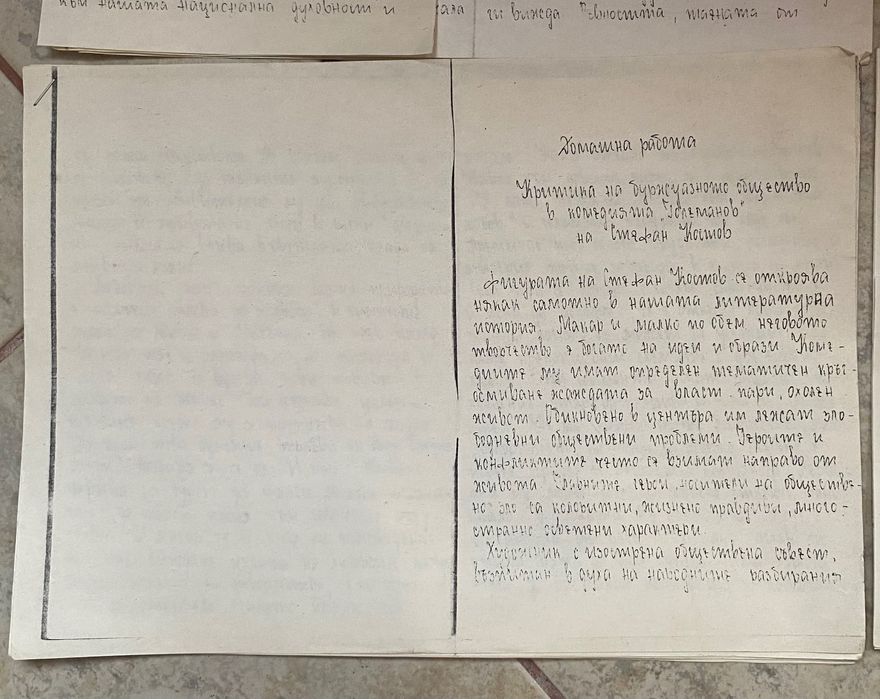 към нашата национална духовност и
ги вижда
Домашна работа
Критика на буржоазното общество
в комедията "Големанов"
на Стефан Костов
Фигурата на Стефан Костов се откроява
някак самотно в нашата литературна
история. Макар и малко по обем неговото
творчество е богато на идеи и образи. Коме-
диите му имат определен тематичен кръг-
осмиване жаждата за власт, пари, охолен
живот. Обикновено в центъра им лежат зло-
бодневни обществени проблеми. Героите и
конфликтите често се взимат направо от
живота. Главните герои, носители на обществе-
но зло са колоритни, жизнено правдиви, много-
странно осветени характери.
Художник с изострена обществена съвест,
възпитан в духа на народните разбирания